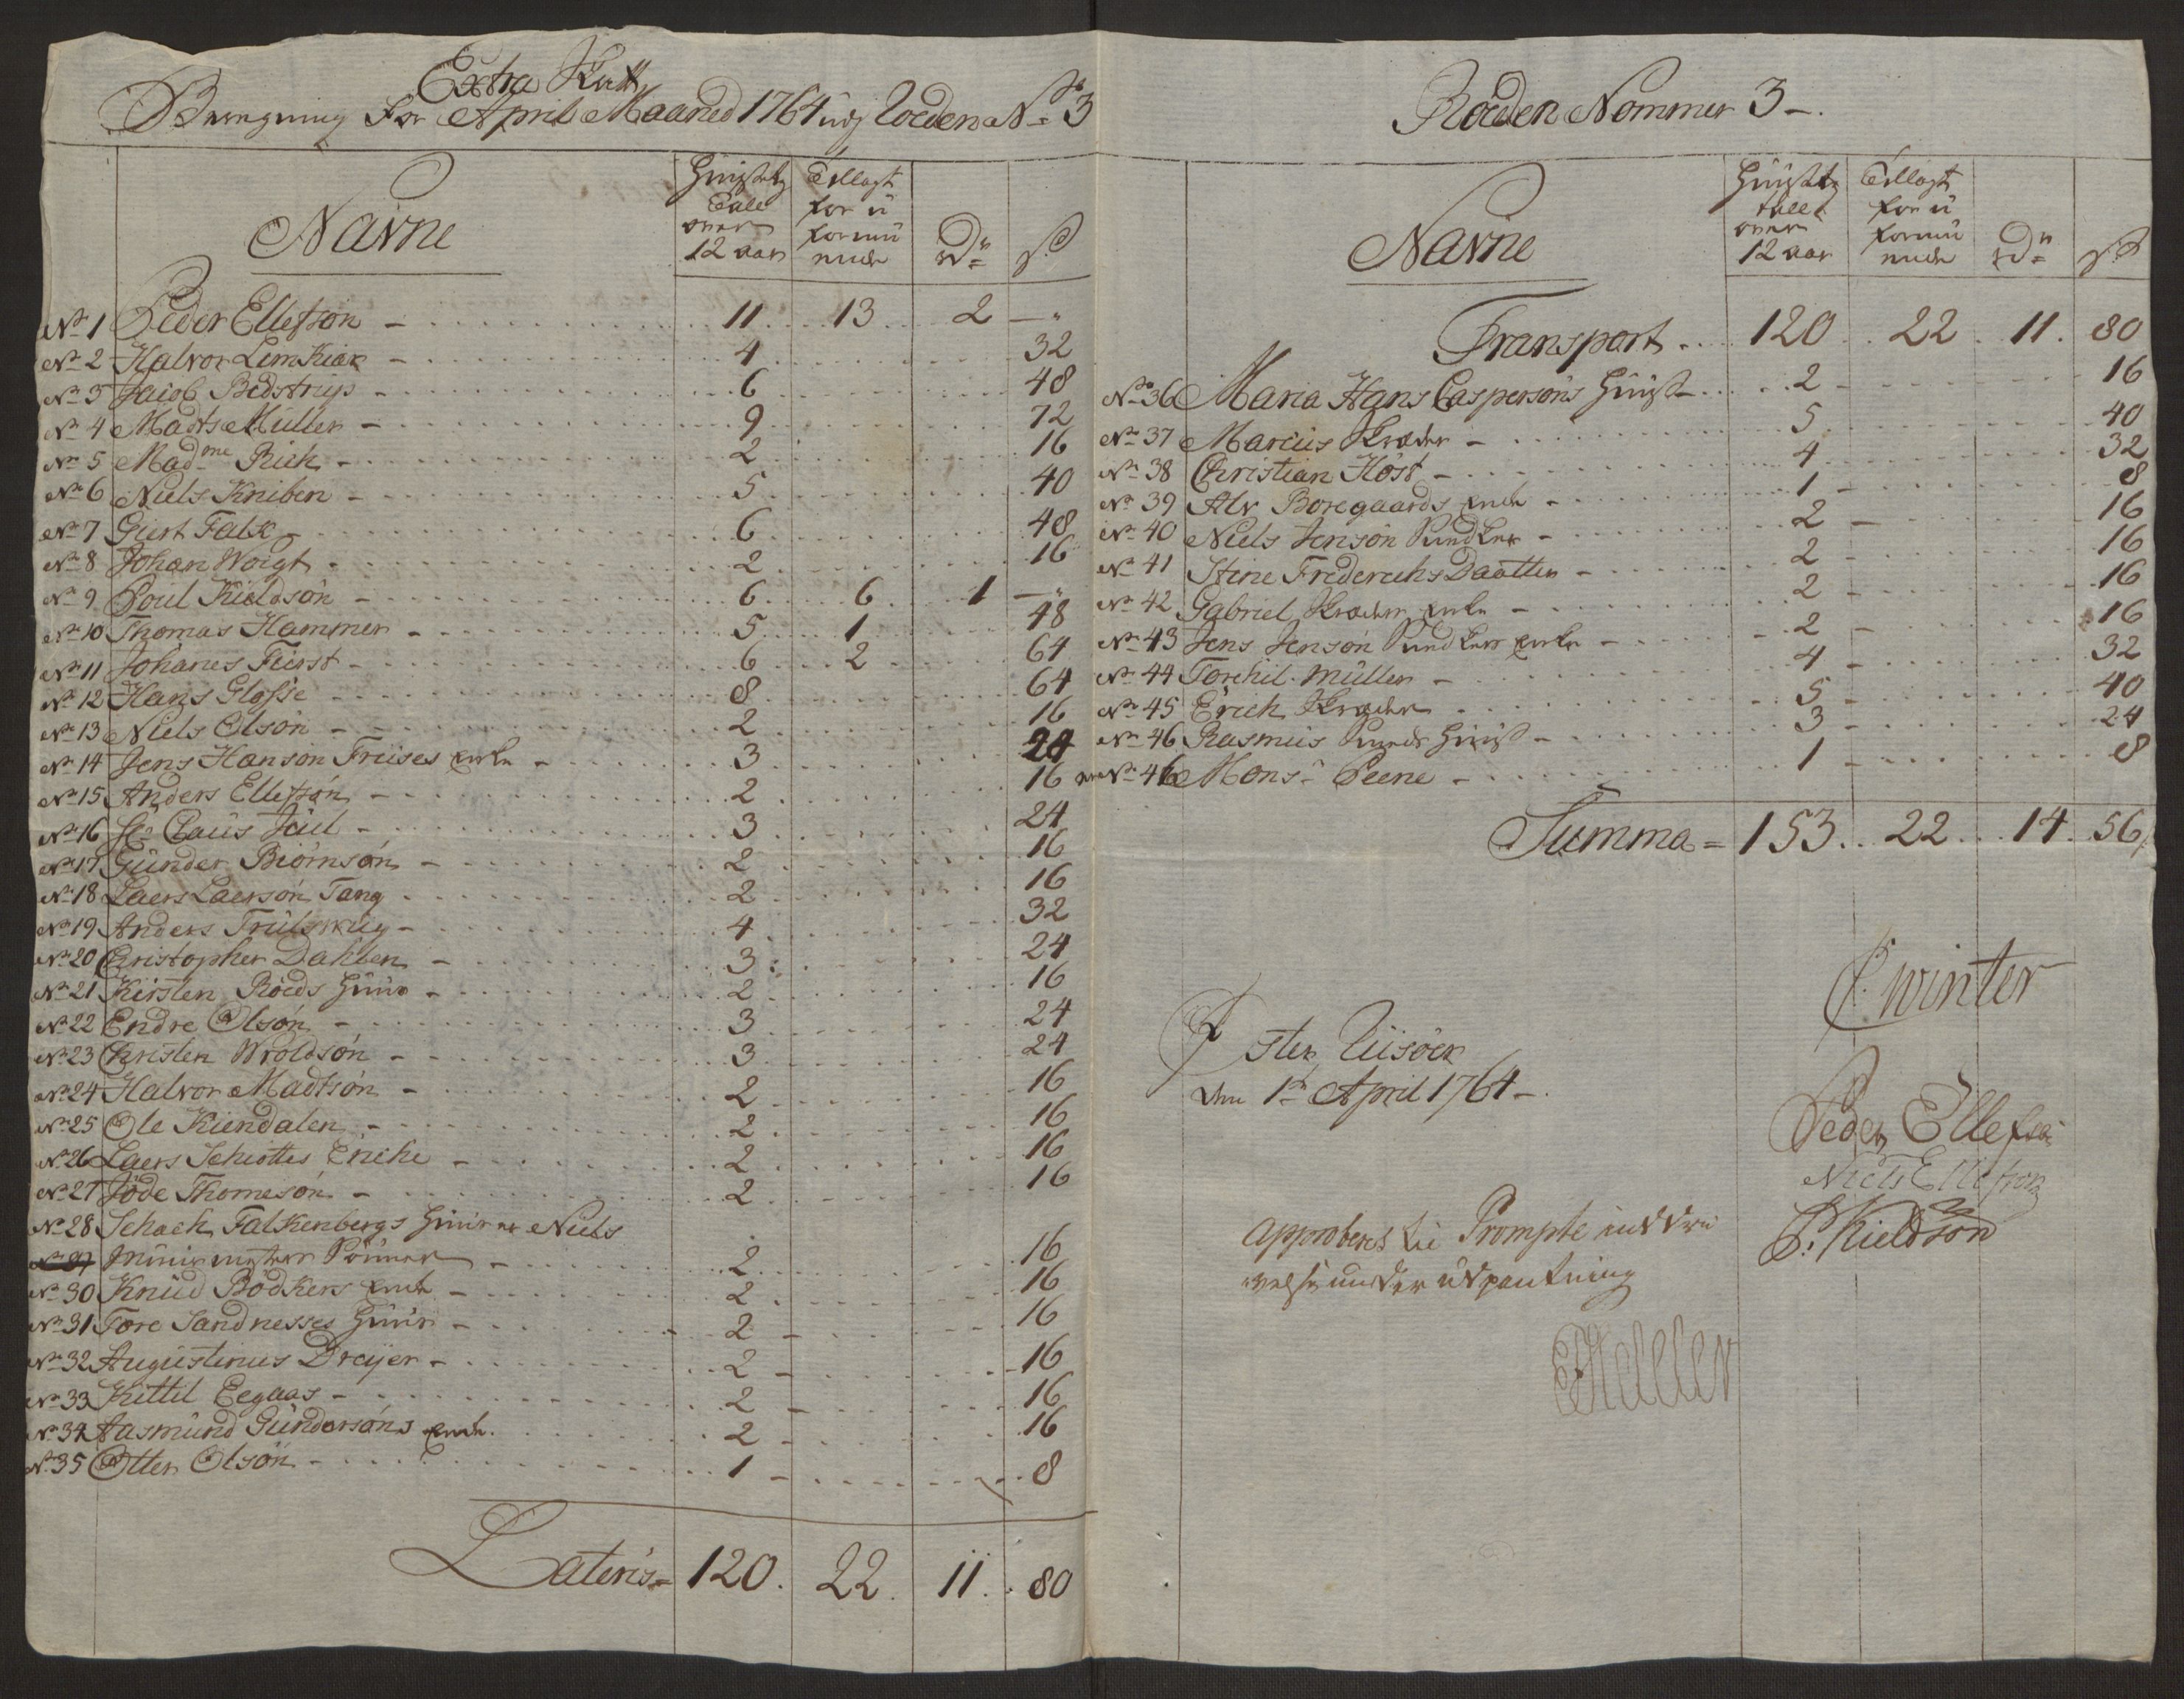 Extra Skatt
Beregning for April Maaned 1764 udj Roeden No 3
Navne
Huusets Tall over 12 aar
Tillagt for u formuende
rd
s
No 1 Peder Ellefsøn - 11 13 2 -"
No 2 Halvor Lemkiær - 4 32
No 3 Jacob Bedstrup - 6 48
No 4 Madts Müller - 9 72
No 5 Madme Rich - 2 16
No 6 Niels Kniben - 5 40
No 7 Giert Falk - 6 48
No 8 Johan Woigt - 2 16
No 9 Poul Kieldsøn - 6 6 1 -"
No 10 Thomas Hammer - 5 1 48
No 11 Johanes Fürst - 6 2 64
No 12 Hans Glosse - 8 64
No 13 Niels Olsøn - 2 16
No 14 Jens Hansøn Friises enke - 3 24
No 15 Anders Ellefsøn - 2 16
No 16 Sr Claus Juul - 3 24
No 17 Gunder Biørnsøn - 2 16
No 18 Laers Laersøn Tang 2 16
No 19 Anders - 4 32
No 20 Christopher Dahlen - 3 24
No 21 Kirsten Röeds - 2 16
No 22 Endre Olsøn - 3 24
No 23 Christen Wroldsøn - 3 24
No 24 Halvor Madtsøn - 2 16
No 25 Ole Kiendalen - 2 16
No 26 Laers Schiøttes Enche - 2 16
No 27 Jöde Thomesøn - 2 16
No 28 Schach Falkenbergs Niels
2 16
No 30 Knud Bödkers enke - 2 16
No 31 Tore Sandnesses - 2 16
No 32 Augustinus Dreyer - 2 16
No 33 Kittil Eegaas - 2 16
No 34 Aasmund Gundersøns enke 2 16
No 35 Otter Olsøn - 1 - 8
Lateris - 120. 22. 11. 80
Roeden Nommer 3 -.
Navne
Huusets tallt over 12 aar
Tillagt for u formuende
rd
s
Transport 120 22 11. 80
No 36 Maria Hans Caspersøns 2 - 16
No 37 Marcus Skreder - 5 40
No 38 Christian Høst - 4 32
No 39 Alv Boregaards enke - 1 - 8
No 40 Niels Jensøn - 2 - 16
No 41 Stine Frederichs Daatter - 2 - 16
No 42 Gabriel Skreder enke - 2 - 16
No 43 Jens Jensøn enke - 2 - 16
No 44 Torchil Müller - 4 - 32
No 45 Erich Skreder 5 - 40
No 46 Rasmus - 3 - 24
No 46 Monsr Peene - 1 - 8
Summa = 153.. 22.. 14. 56
C. Winter
Øster Riisöer
den 1te April 1764 -.
Peder Ellefsen
Niels Ellefsen
P. Kieldsøn
Approberes til Prompte inddri
velse under udpantning